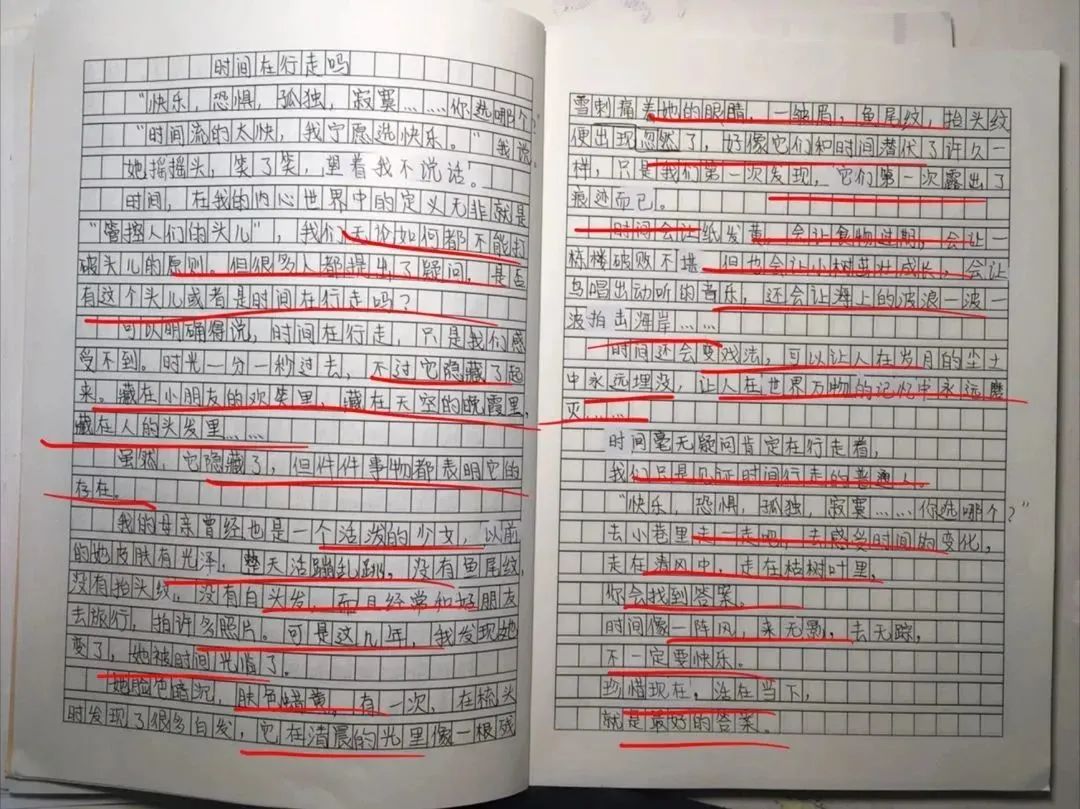 时间在行走吗
“快乐，恐惧，孤独，寂寞……你选哪个？”
“时间流的太快，我宁愿选快乐。”我说。
她摇摇头，笑了笑，望着我不说话。
时间，在我的内心世界中的定义无非就是
“管控人们的头儿”，我们无论如何都不能打
破头儿的原则。但很多人都提出了疑问，是否
有这个头儿或者是时间在行走吗？
可以明确得说，时间在行走，只是我们感
受不到。时光一分一秒过去，不过它隐藏了起
来。藏在小朋友的欢笑里，藏在天空的晚霞里，
藏在人的头发里……
虽然，它隐藏了，但件件事物都表明它的
存在。
我的母亲曾经也是一个活泼的少女，以前
的她皮肤有光泽，整天活蹦乱跳，没有鱼尾纹，
没有抬头纹，没有白头发，而且经常和好朋友
去旅行，拍许多照片。可是这几年，我发现她
变了，她被时间光顾了。
她脸色暗沉，肤色蜡黄，有一次，在梳头
时发现了很多白发，它在清晨的光里像一根残
雪刺痛着她的眼睛，一皱眉，鱼尾纹，抬头纹
便出现忽然了，好像它们和时间潜伏了许久一
样，只是我们第一次发现，它们第一次露出了
痕迹而已。
时间会让纸发黄，会让食物过期，会让一
栋楼破败不堪，但也会让小树茁壮成长，会让
鸟唱出动听的音乐，还会让海上的波浪一波一
波拍击海岸……
时间还会变戏法，可以让人在岁月的尘土
中永远埋没，让人在世界万物的记忆中永远磨
灭……
时间毫无疑问肯定在行走着，
我们只是见证时间行走的普通人。
“快乐，恐惧，孤独，寂寞……你选哪个？”
去小巷里走一走吧，去感受时间的变化，
走在清风中，走在枯树叶里，
你会找到答案。
时间像一阵风，来无影，去无踪，
不一定要快乐。
珍惜现在，活在当下，
就是最好的答案。